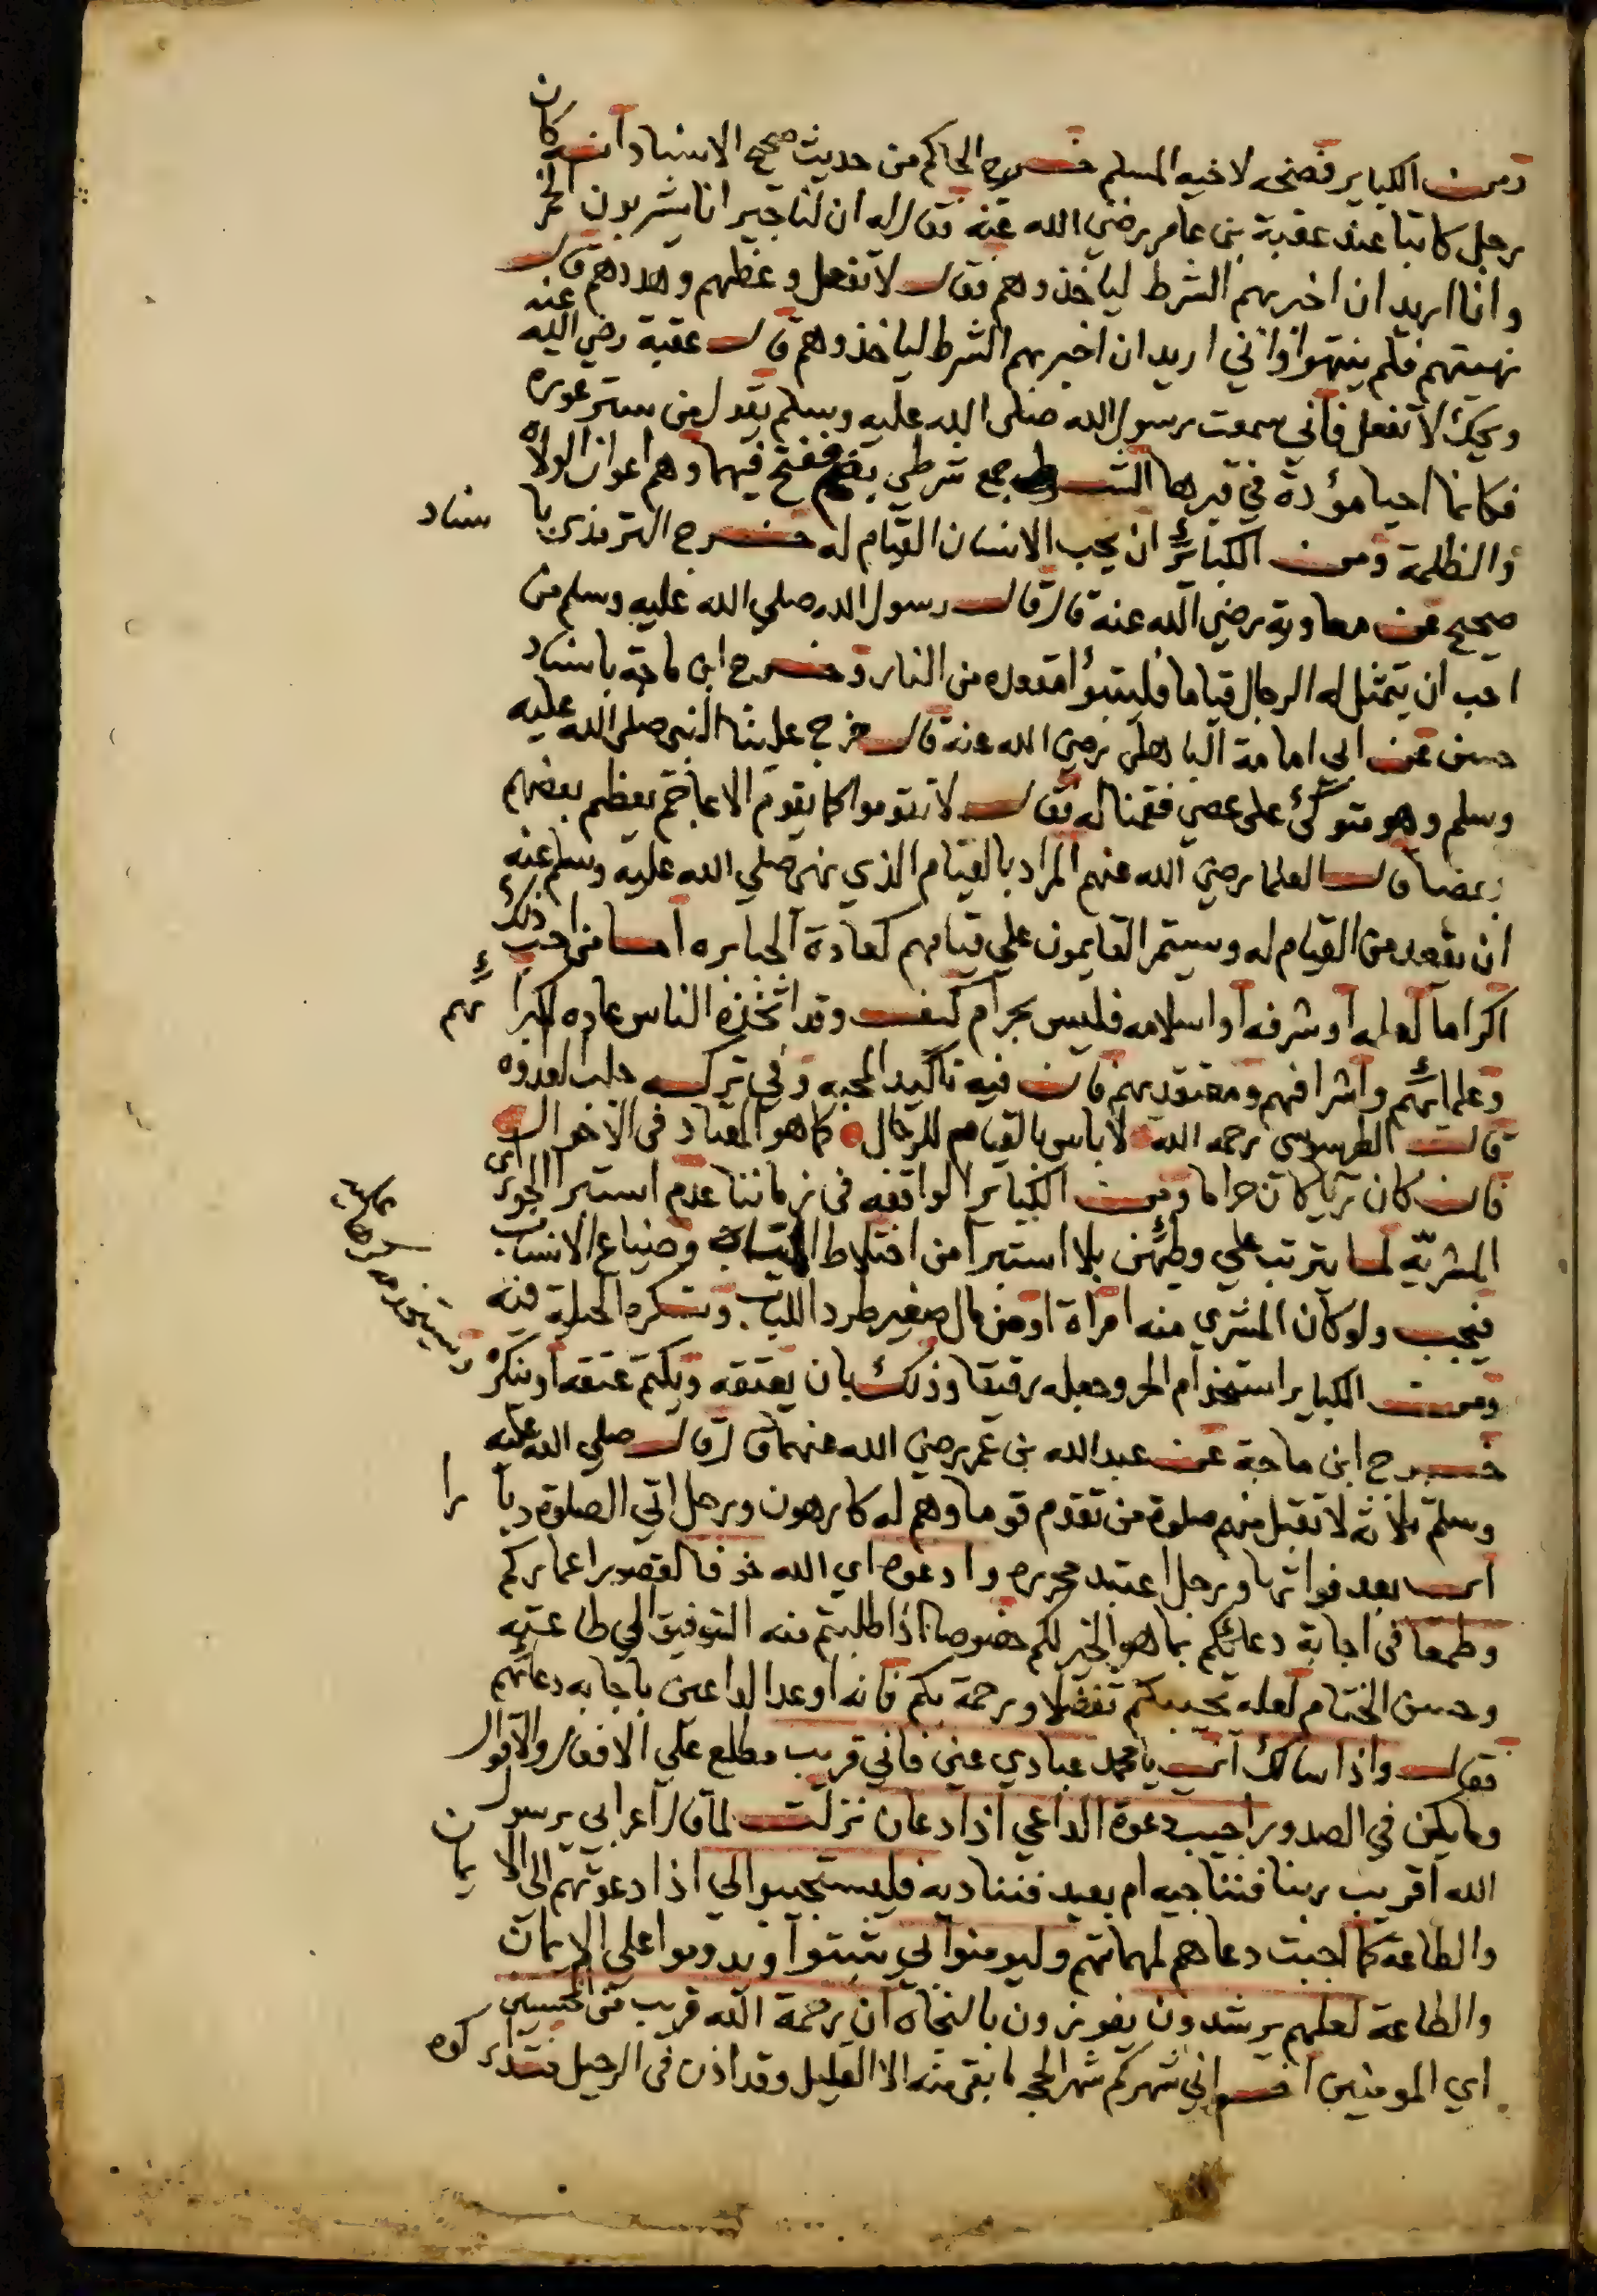 ومن الكباير فضحه لاخيه المسلم خرج الحاكم من حديث صحيح الاسناد انه كان
رجل كاتبا عند عقبة بن عامر رضي الله عنه فقال له ان لنا جيرانا يشربون الخمر
وانا اريد ان اخبر بهم الشرط لياخذوهم فقال لا تفعل وعظهم وهددهم قال
نهيتهم فلم ينتهوا واني اريد ان اخبر بهم الشرط لياخذوهم قال عقبة رضي الله عنه
ويحك لا تفعل فاني سمعت رسول الله صلى الله عليه وسلم يقول من ستر عورة
فكانما احيا موؤدة في قبرها الشرط جمع شرطي بضم ففتح فيهما وهم اعوان الولاة
والظلمة ومن الكبائر ان يحب الانسان القيام له خرج الترمذي باسناد
صحيح عن معاوية رضي الله عنه قال قال رسول الله صلي الله عليه وسلم من
احب ان يتمثل له الرجال قياما فليتبوأ مقعده من النار وخرج ابن ماجة باسناد
حسن عن ابي امامة الباهلي رضي الله عنه قال خرج علينا النبي صلى الله عليه
وسلم وهو متوكئ على عصي فقمنا له فقال لا تقوموا كما يقوم الاعاجم يعظم بعضهم
بعضا قال العلما رضي الله عنهم المراد بالقيام الذي نهى صلي الله عليه وسلم عنه
ان يقعد من القيام له ويستمر القايمون علي قيامهم كعادة الجبابره اما من احب ذلك
اكراما لعلمه او شرفه او اسلامه فليس بحرام كيف وقد اتخذه الناس عاده لكبرائهم
وعلمائهم واشرافهم ومعتقديهم فان فيه تاكيد المحبه وفي تركه جلب العدوه
قال الطرسوسي رحمه الله لا باس بالقيام للرجال كما هو المعتاد في الاخوال
فان كان تركا كان حراما ومن الكباير الواقعه في زماننا عدم استبرا الجواري
المشريّه لما يترتب علي وطئهن بلا استبرا من اختلاط المياه وضياع الانساب
فيجب ولو كان المشري منه امراة او من مال صغير طرد اللباب وتكره الحيلة فيه
ومن الكباير استخدام الحر وجعله رقيقا وذلك بان يعتقه ويكتم عتقه او ينكره
ويستخدمه كرها عليه
خرج ابن ماجة عن عبد الله بن عمر رضي الله عنهما قال قال صلي الله عليه
وسلم ثلاثه لا تقبل منهم صلوة من تقدم قوما وهم له كارهون ورجل اتي الصلوة دبارا
اي بعد فواتها ورجل اعتبد محرره وادعوه اي الله خوفا لقصور اعماركم
وطمعا في اجابة دعائكم بما هو الخير لكم خصوصا اذا طلبتم منه التوفيق الي طاعته
وحسن الختام لعله يجيبكم تفضلا ورحمة بكم فانه اوعد الداعين باجابه دعائهم
فقال واذا سالك اي يا محمد عبادي عني فاني قريب مطلع علي الافعال والاقوال
وما يكن في الصدور اجيب دعوة الداعي اذا دعان نزلت لما قال اعرابي يرسول
الله اقريب ربنا فنناجيه ام بعيد فنناديه فليستجيبوا لي اذا دعوتهم الي الايمان
والطاعة كما اجبت دعاهم لمهماتهم وليومنوا لي يثبتوا ويدوموا على الايمان
والطاعة لعلهم يرشدون يفوزون بالنجاة ان رحمة الله قريب من المحسنين
اي المومنين اخواني شهركم شهر الحجه ما بقي منه الا القليل وقد اذن في الرحيل فتداركوه